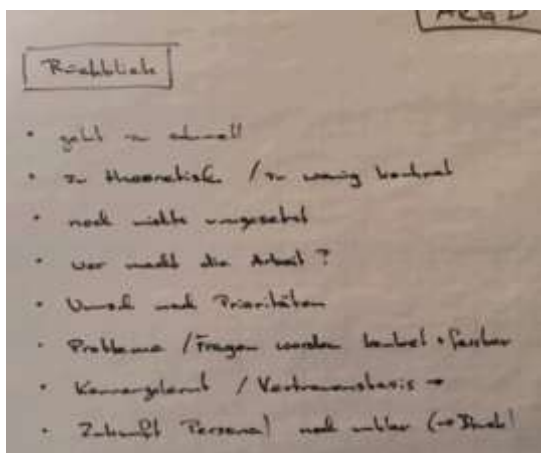 Rückblick
• geht zu schnell
• zu theoretisch / zu wenig konkret
• noch nichts umgesetzt
• wer macht die Arbeit?
• Wunsch nach Prioritäten
• Probleme / Fragen werden konkret +
• Kennengelernt / Vertrauensbasis →
• Zukunft Personal noch unklar (→